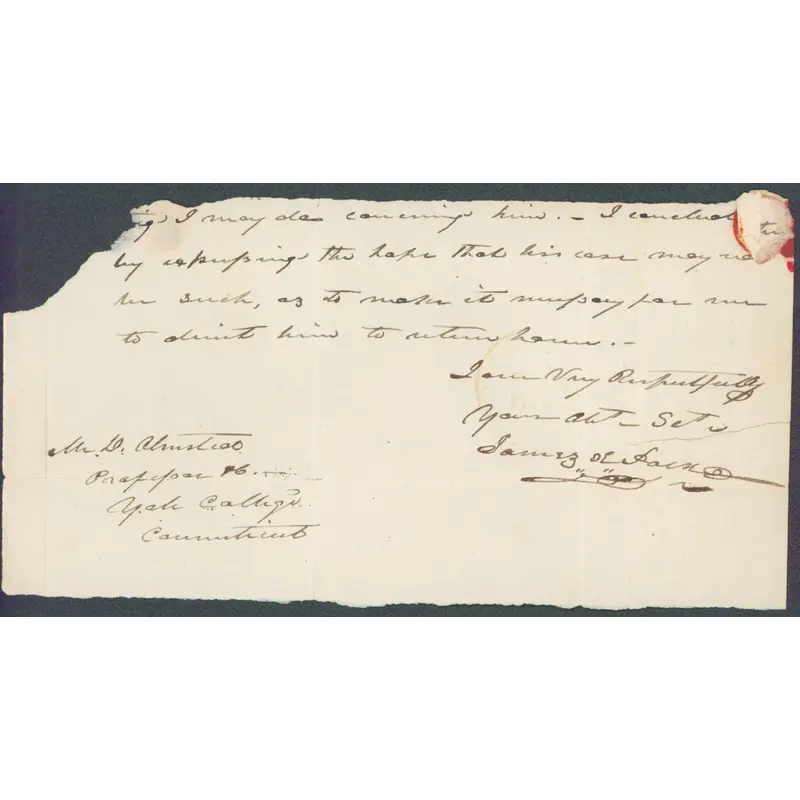 I may do concerning him. - I conclude
by expressing the hope that his case may no
be such, as to make it necessary for me
to direct him to return home. -
I am Very Respectfully
Your Obt. Sert.
James K Polk
Mr. D. Olmsted
Professor &c.
Yale College
Connecticut